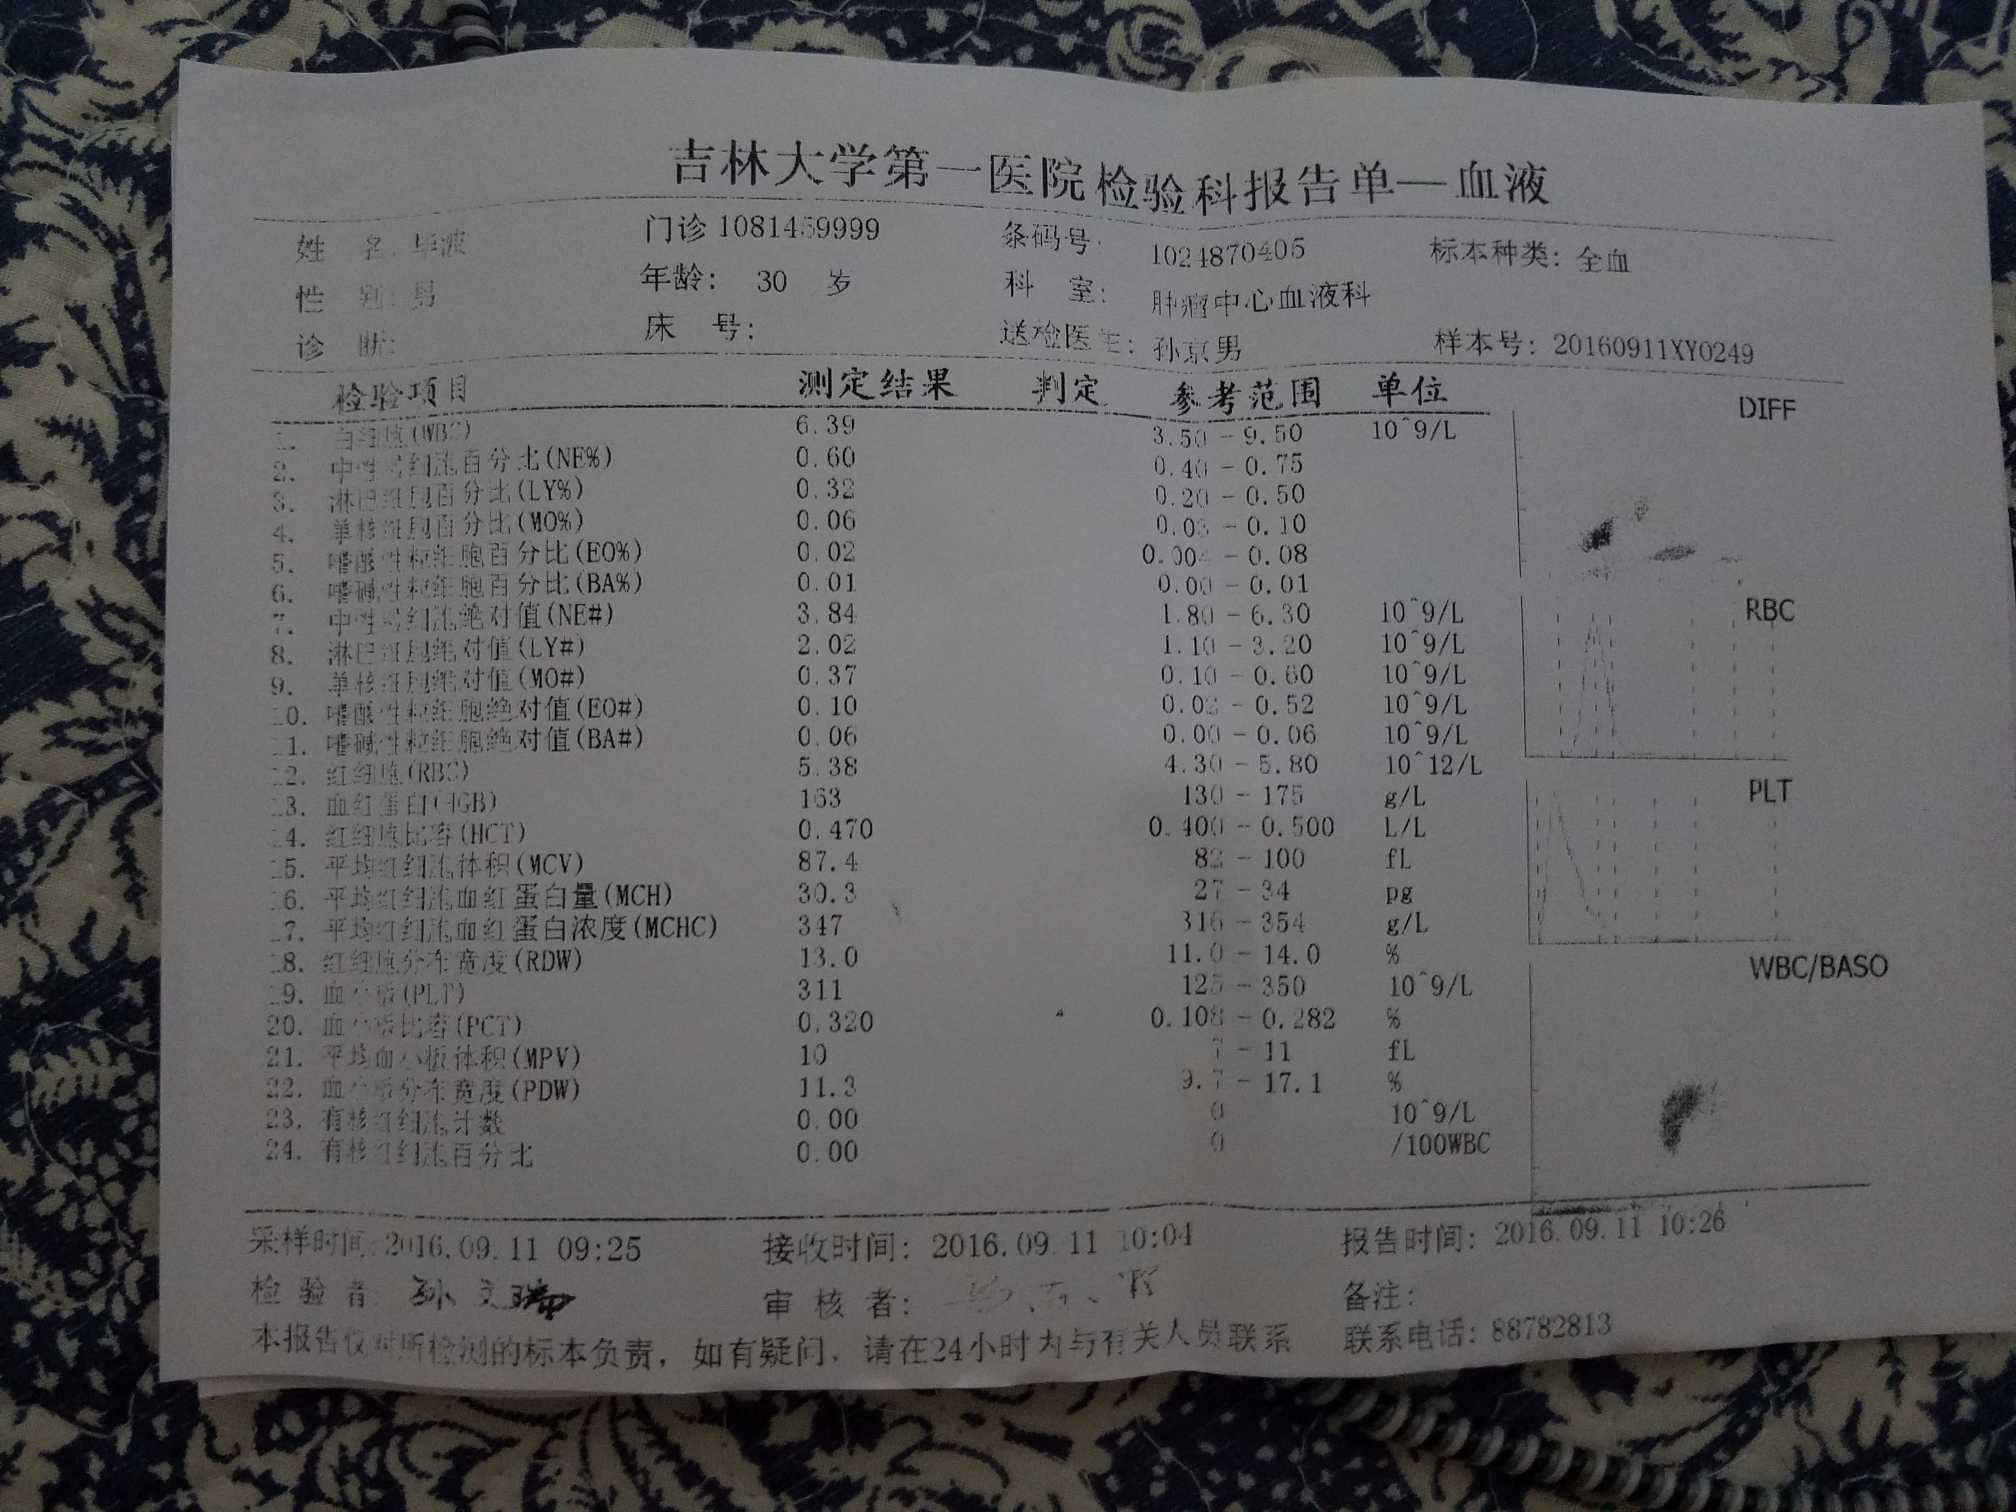 吉林大学第一医院检验科报告单—血液
姓 名: 毕波 门诊 1081459999 条码号: 1024870405 标本种类: 全血
性 别: 男 年龄: 30 岁 科 室: 肿瘤中心血液科
诊 断: 床 号: 送检医生: 孙京男 样本号: 20160911XY0249
检验项目 测定结果 判定 参考范围 单位
1. 白细胞(WBC) 6.39 3.50 - 9.50 10^9/L
2. 中性粒细胞百分比(NE%) 0.60 0.40 - 0.75
3. 淋巴细胞百分比(LY%) 0.32 0.20 - 0.50
4. 单核细胞百分比(MO%) 0.06 0.03 - 0.10
5. 嗜酸性粒细胞百分比(EO%) 0.02 0.004 - 0.08
6. 嗜碱性粒细胞百分比(BA%) 0.01 0.00 - 0.01
7. 中性粒细胞绝对值(NE#) 3.84 1.80 - 6.30 10^9/L
8. 淋巴细胞绝对值(LY#) 2.02 1.10 - 3.20 10^9/L
9. 单核细胞绝对值(MO#) 0.37 0.10 - 0.60 10^9/L
10. 嗜酸性粒细胞绝对值(EO#) 0.10 0.02 - 0.52 10^9/L
11. 嗜碱性粒细胞绝对值(BA#) 0.06 0.00 - 0.06 10^9/L
12. 红细胞(RBC) 5.38 4.30 - 5.80 10^12/L
13. 血红蛋白(HGB) 163 130 - 175 g/L
14. 红细胞比容(HCT) 0.470 0.400 - 0.500 L/L
15. 平均红细胞体积(MCV) 87.4 82 - 100 fL
16. 平均红细胞血红蛋白量(MCH) 30.3 27 - 34 pg
17. 平均红细胞血红蛋白浓度(MCHC) 347 316 - 354 g/L
18. 红细胞分布宽度(RDW) 13.0 11.0 - 14.0 %
19. 血小板(PLT) 311 125 - 350 10^9/L
20. 血小板比容(PCT) 0.320 0.108 - 0.282 %
21. 平均血小板体积(MPV) 10 7 - 11 fL
22. 血小板分布宽度(PDW) 11.3 9.7 - 17.1 %
23. 有核红细胞计数 0.00 0 10^9/L
24. 有核红细胞百分比 0.00 0 /100WBC
DIFF
RBC
PLT
WBC/BASO
采样时间: 2016.09.11 09:25 接收时间: 2016.09.11 10:04 报告时间: 2016.09.11 10:26
检 验 者: 孙 审 核 者: 备注:
本报告仅对所检测的标本负责, 如有疑问, 请在24小时内与有关人员联系 联系电话: 88782813